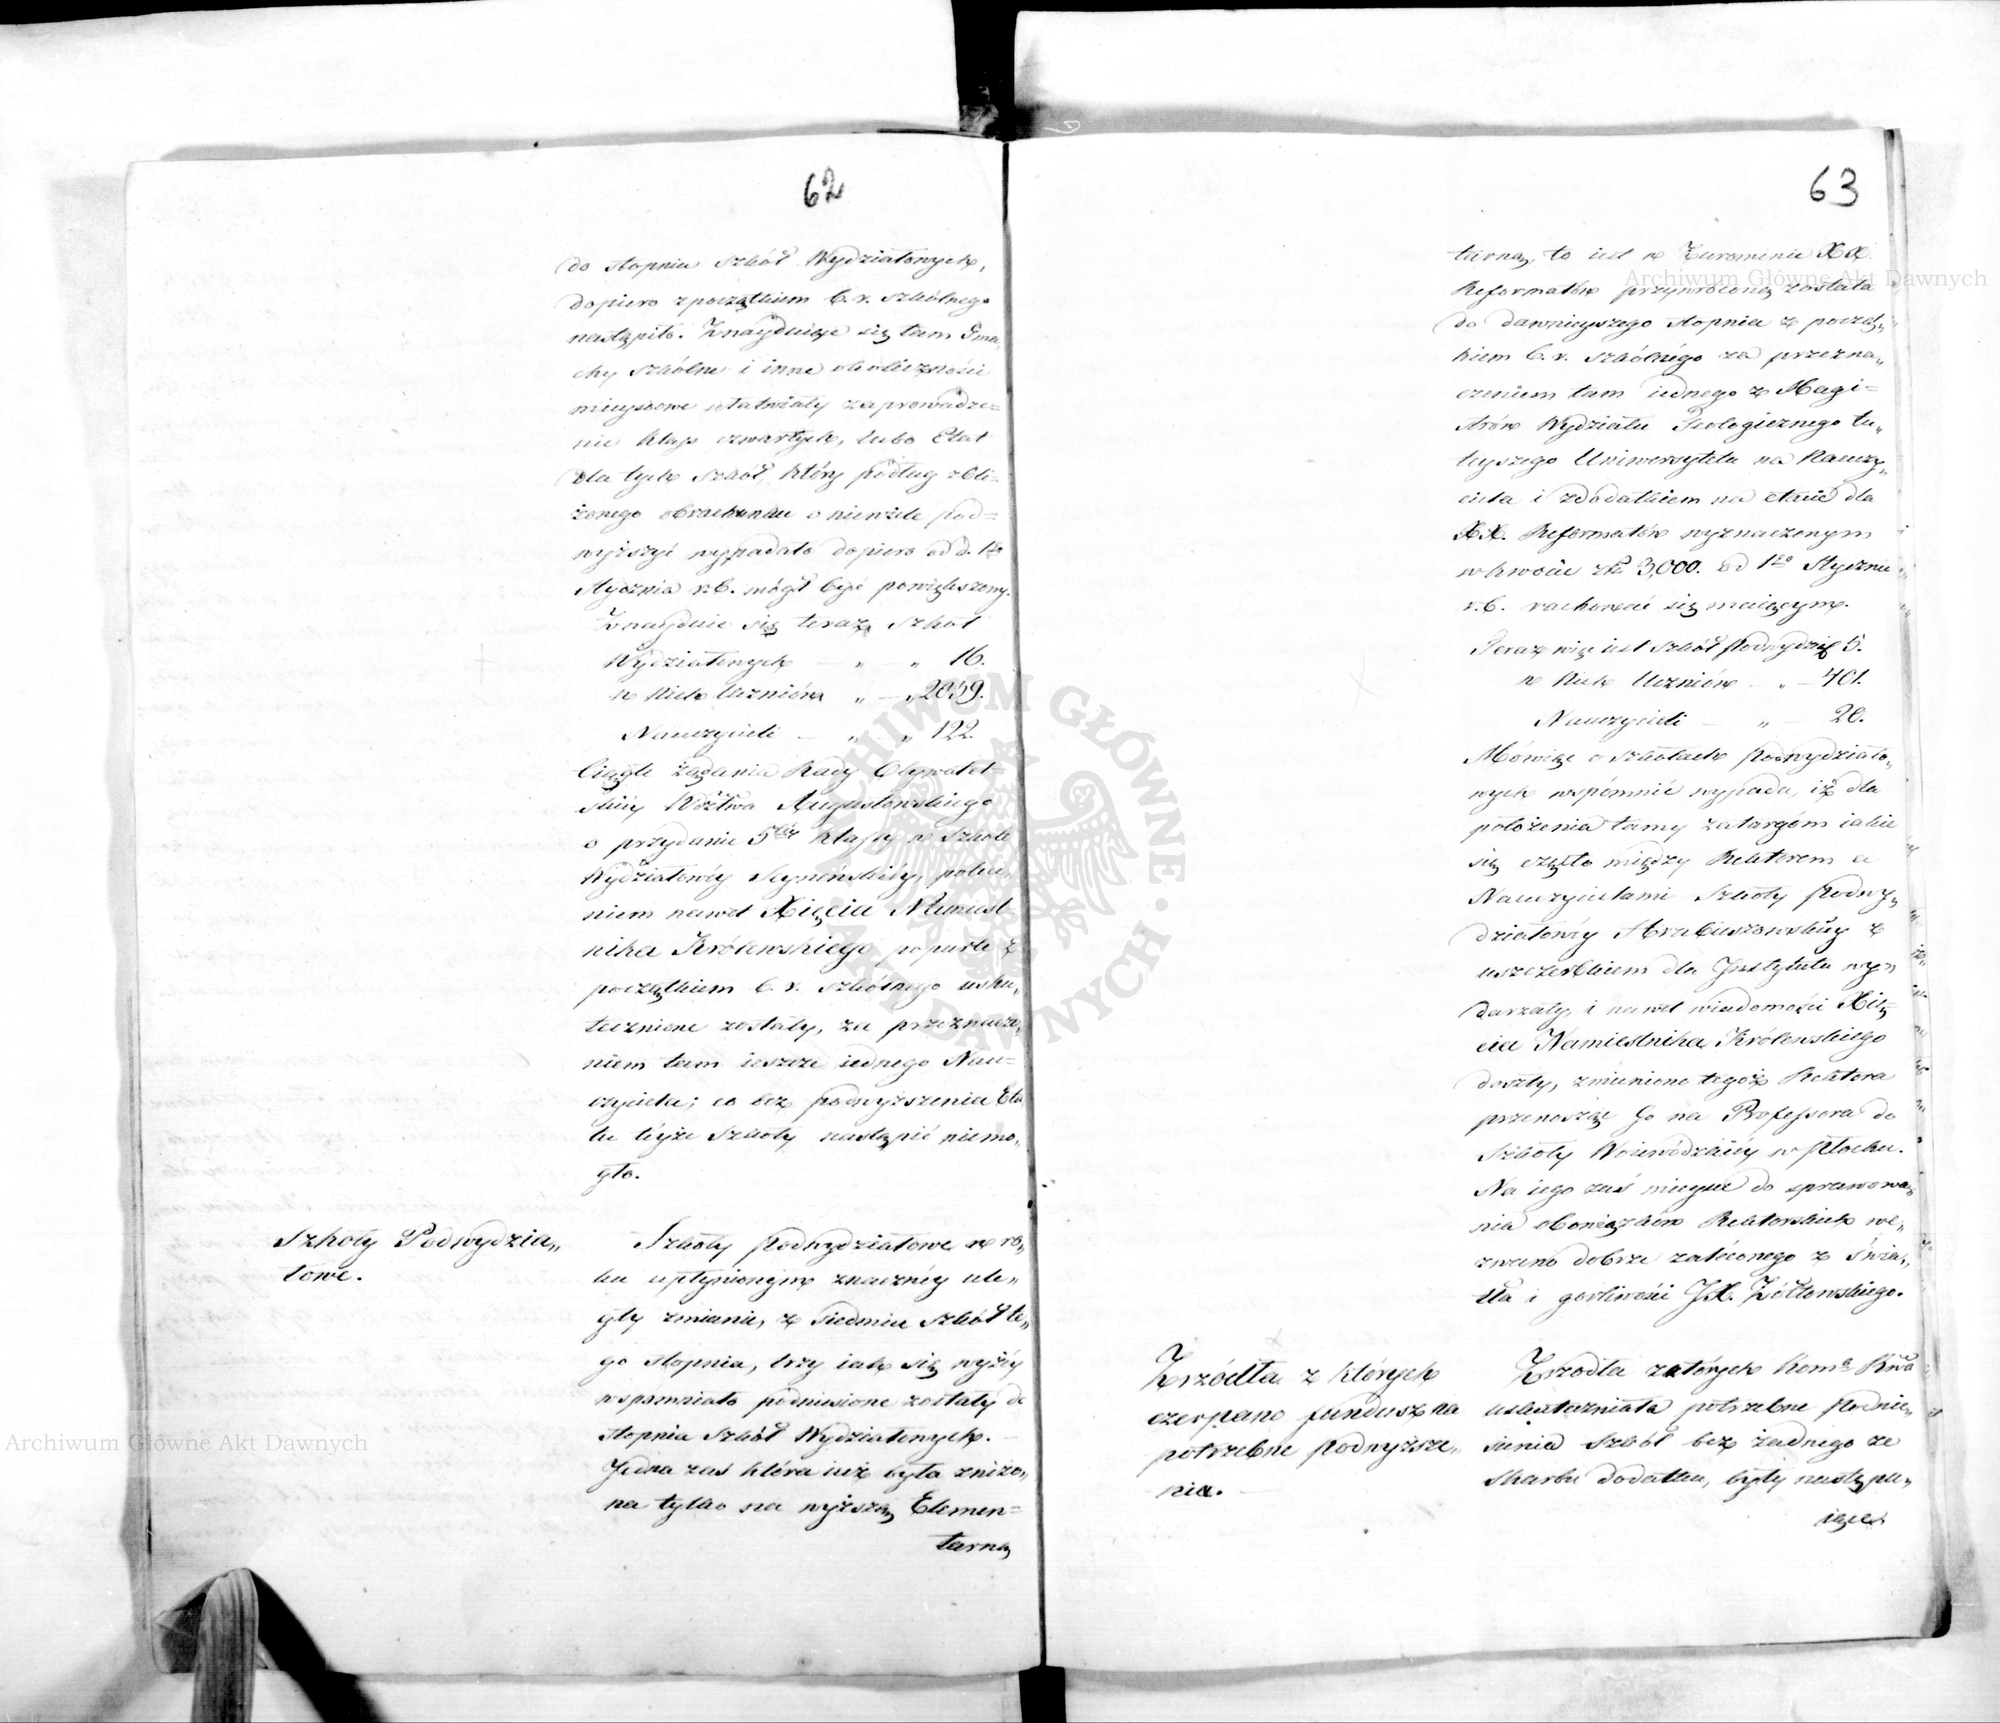 62
do stopnia szkół Wydziałowych,
dopiero z początkiem b. r. szkólnego
nastąpiło. Znayduiące się tam Gma-
chy szkólne i inne okoliczności
mieyscowe ułatwiały zaprowadze=
nie klass czwartych, lubo Etat
dla tych szkół, który podług zbli-
żonego obrachunku o niewiele pod=
wyższyć wypadało dopiero od d. 1go
Stycznia r. b. mógł być powiększony.
Znayduie się teraz szkół
Wydziałowych — „ „ 16.
w nich Uczniów „ — „ 2059.
Nauczycieli — „ „ 122.
Ciągłe żądania Rady Obywatel=
skiéy Wdztwa Augustowskiego
o przydanie 5téy klassy w szkole
Wydziałowéy Seynenskiéy, polece„
niem nawet Xięcia Namiest=
nika Królewskiego poparte z
początkiem b. r. szkólnego usku„
tecznione zostały, za przeznacze„
niem tam ieszcze iednego Nau=
czyciela; co bez podwyższenia Eta
tu téyże szkoły nastąpić niemo„
gło.
Szkoły Podwydzia„
łowe.
Szkoły podwydziałowe w ro„
ku upłynionym znacznéy ule„
gły zmianie, z siedmiu szkół te„
go stopnia, trzy iak się wyżéy
wspomniało podniesione zostały do
stopnia szkół Wydziałowych. —
Jedna zaś która iuż była zniżo„
na tylko na wyższą Elemen=
tarną
63
tarną, to iest w Zurominie XX.
Reformatów przywróconą została
do dawnieyszego stopnia z począt„
kiem b. r. szkólnégo za przezna„
czeniem tam iednego z Magi=
strów Wydziału Teologicznego tu„
teyszego Uniwersytetu na Nauczy„
ciela i z dodatkiem na etacie dla
XX. Reformatów wyznaczonym
w kwocie złp. 3,000. od 1go Stycznia
r. b. rachować się maiącym.
Teraz więc iest szkół podwydział 5.
w nich Uczniów — „ — 401.
Nauczycieli — „ — 20.
Mówiąc o szkołach podwydziało„
wych wspomnić wypada, iż dla
położenia tamy zatargom iakie
się często między Rektorem a
Nauczycielami szkoły podwy„
działowéy Hrubieszowskiéy z
uszczerbkiem dla Instytutu wy„
darzały, i nawet wiadomości Xię
cia Namiestnika Królewskiego
doszły, zmieniono tegoż Rektora
przenosząc Go na Professora do
szkoły Woiewódzkiéy w Płocku.
Na iego zaś mieysce do sprawowa„
nia obowiązków Rektorskich we„
zwano dobrze zaleconego z świa„
tła i gorliwości JX. Żółtowskiego.
Zrzódła z których
czerpano fundusz na
potrzebne podwyższe„
nia. —
Zrzodła z których Kom̃a Rwa
uskuteczniała potrzebne podnie„
sienia szkół bez żadnego ze
skarbu dodatku, były nastepu„
iące.
Archiwum Główne Akt Dawnych
Archiwum Główne Akt Dawnych
ARCHIWUM GŁÓWNE · AKT DAWNYCH ·